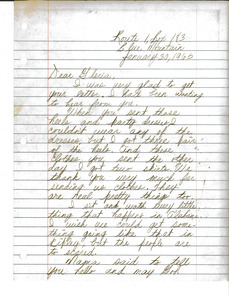 Route 1, Box 183
Blue Mountain
January 30, 1965
Dear Gloria,
I was very glad to get
your letter. I have been wanting
to hear from you.
When you sent those
heels and party dresses I
couldn't wear any of the
dresses but I got three pair
of the heels. And these
clothes you sent the other
day I got two skirts. We
thank you very much for
sending us clothes. They
are real pretty things too.
I sit and watch every little
thing that happens in
I wish we could get some-
thing going like that in
Ripley but the people are
to scared.
Mama said to tell
you hello and may God